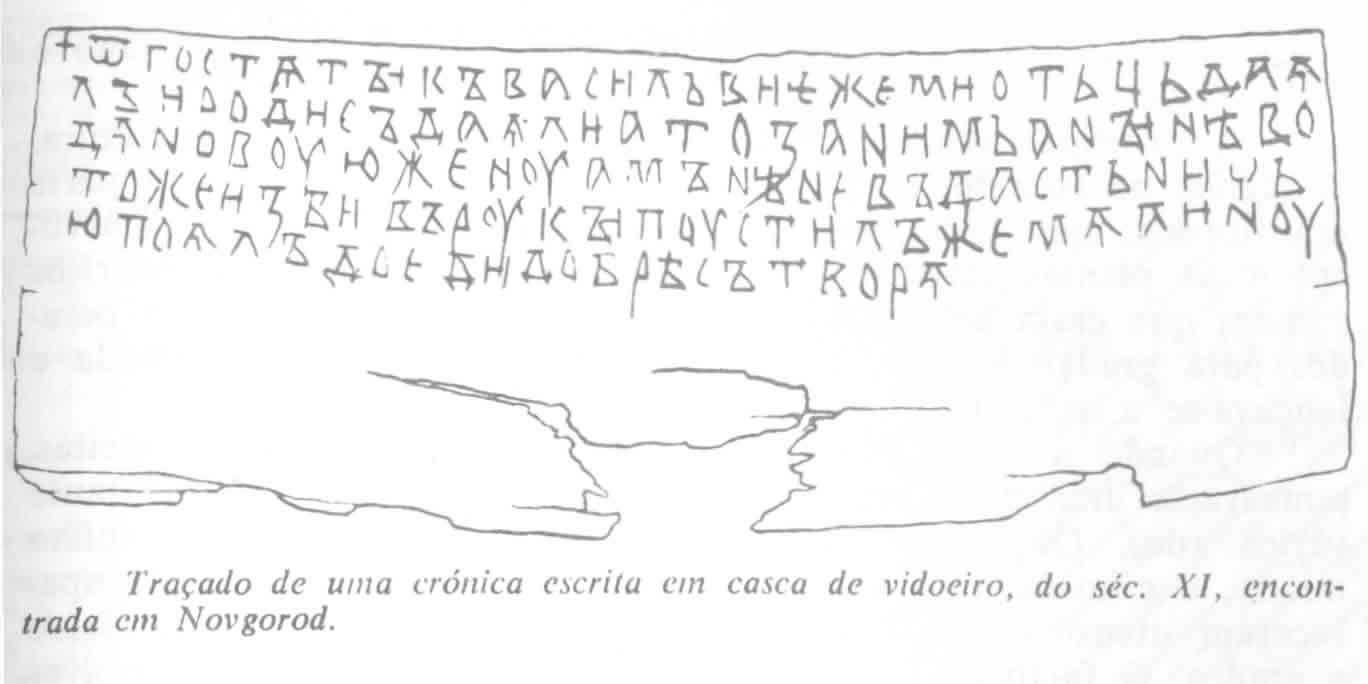 +ѾГОСТѦТЪІКЪВАСИЛЬВИѤЖЕМИОТЬЦЬДАѦ
ЛЪИРОДИСЪДАѦЛИАТОЗАНИМЬАНЪІНѢВО
ДѦНОВОУЮЖЕНОУАМЪНѢНЕВЪДАСТЬНИЧЬ
ТОЖЕИЗБИВЪРОУКЪІПОУСТИЛЪЖЕМѦАИНОУ
ЮПОѦЛЪДОЕДИДОБРѢСЪТВОРѦ
Traçado de uma crónica escrita em casca de vidoeiro, do séc. XI, encon-
trada em Novgorod.